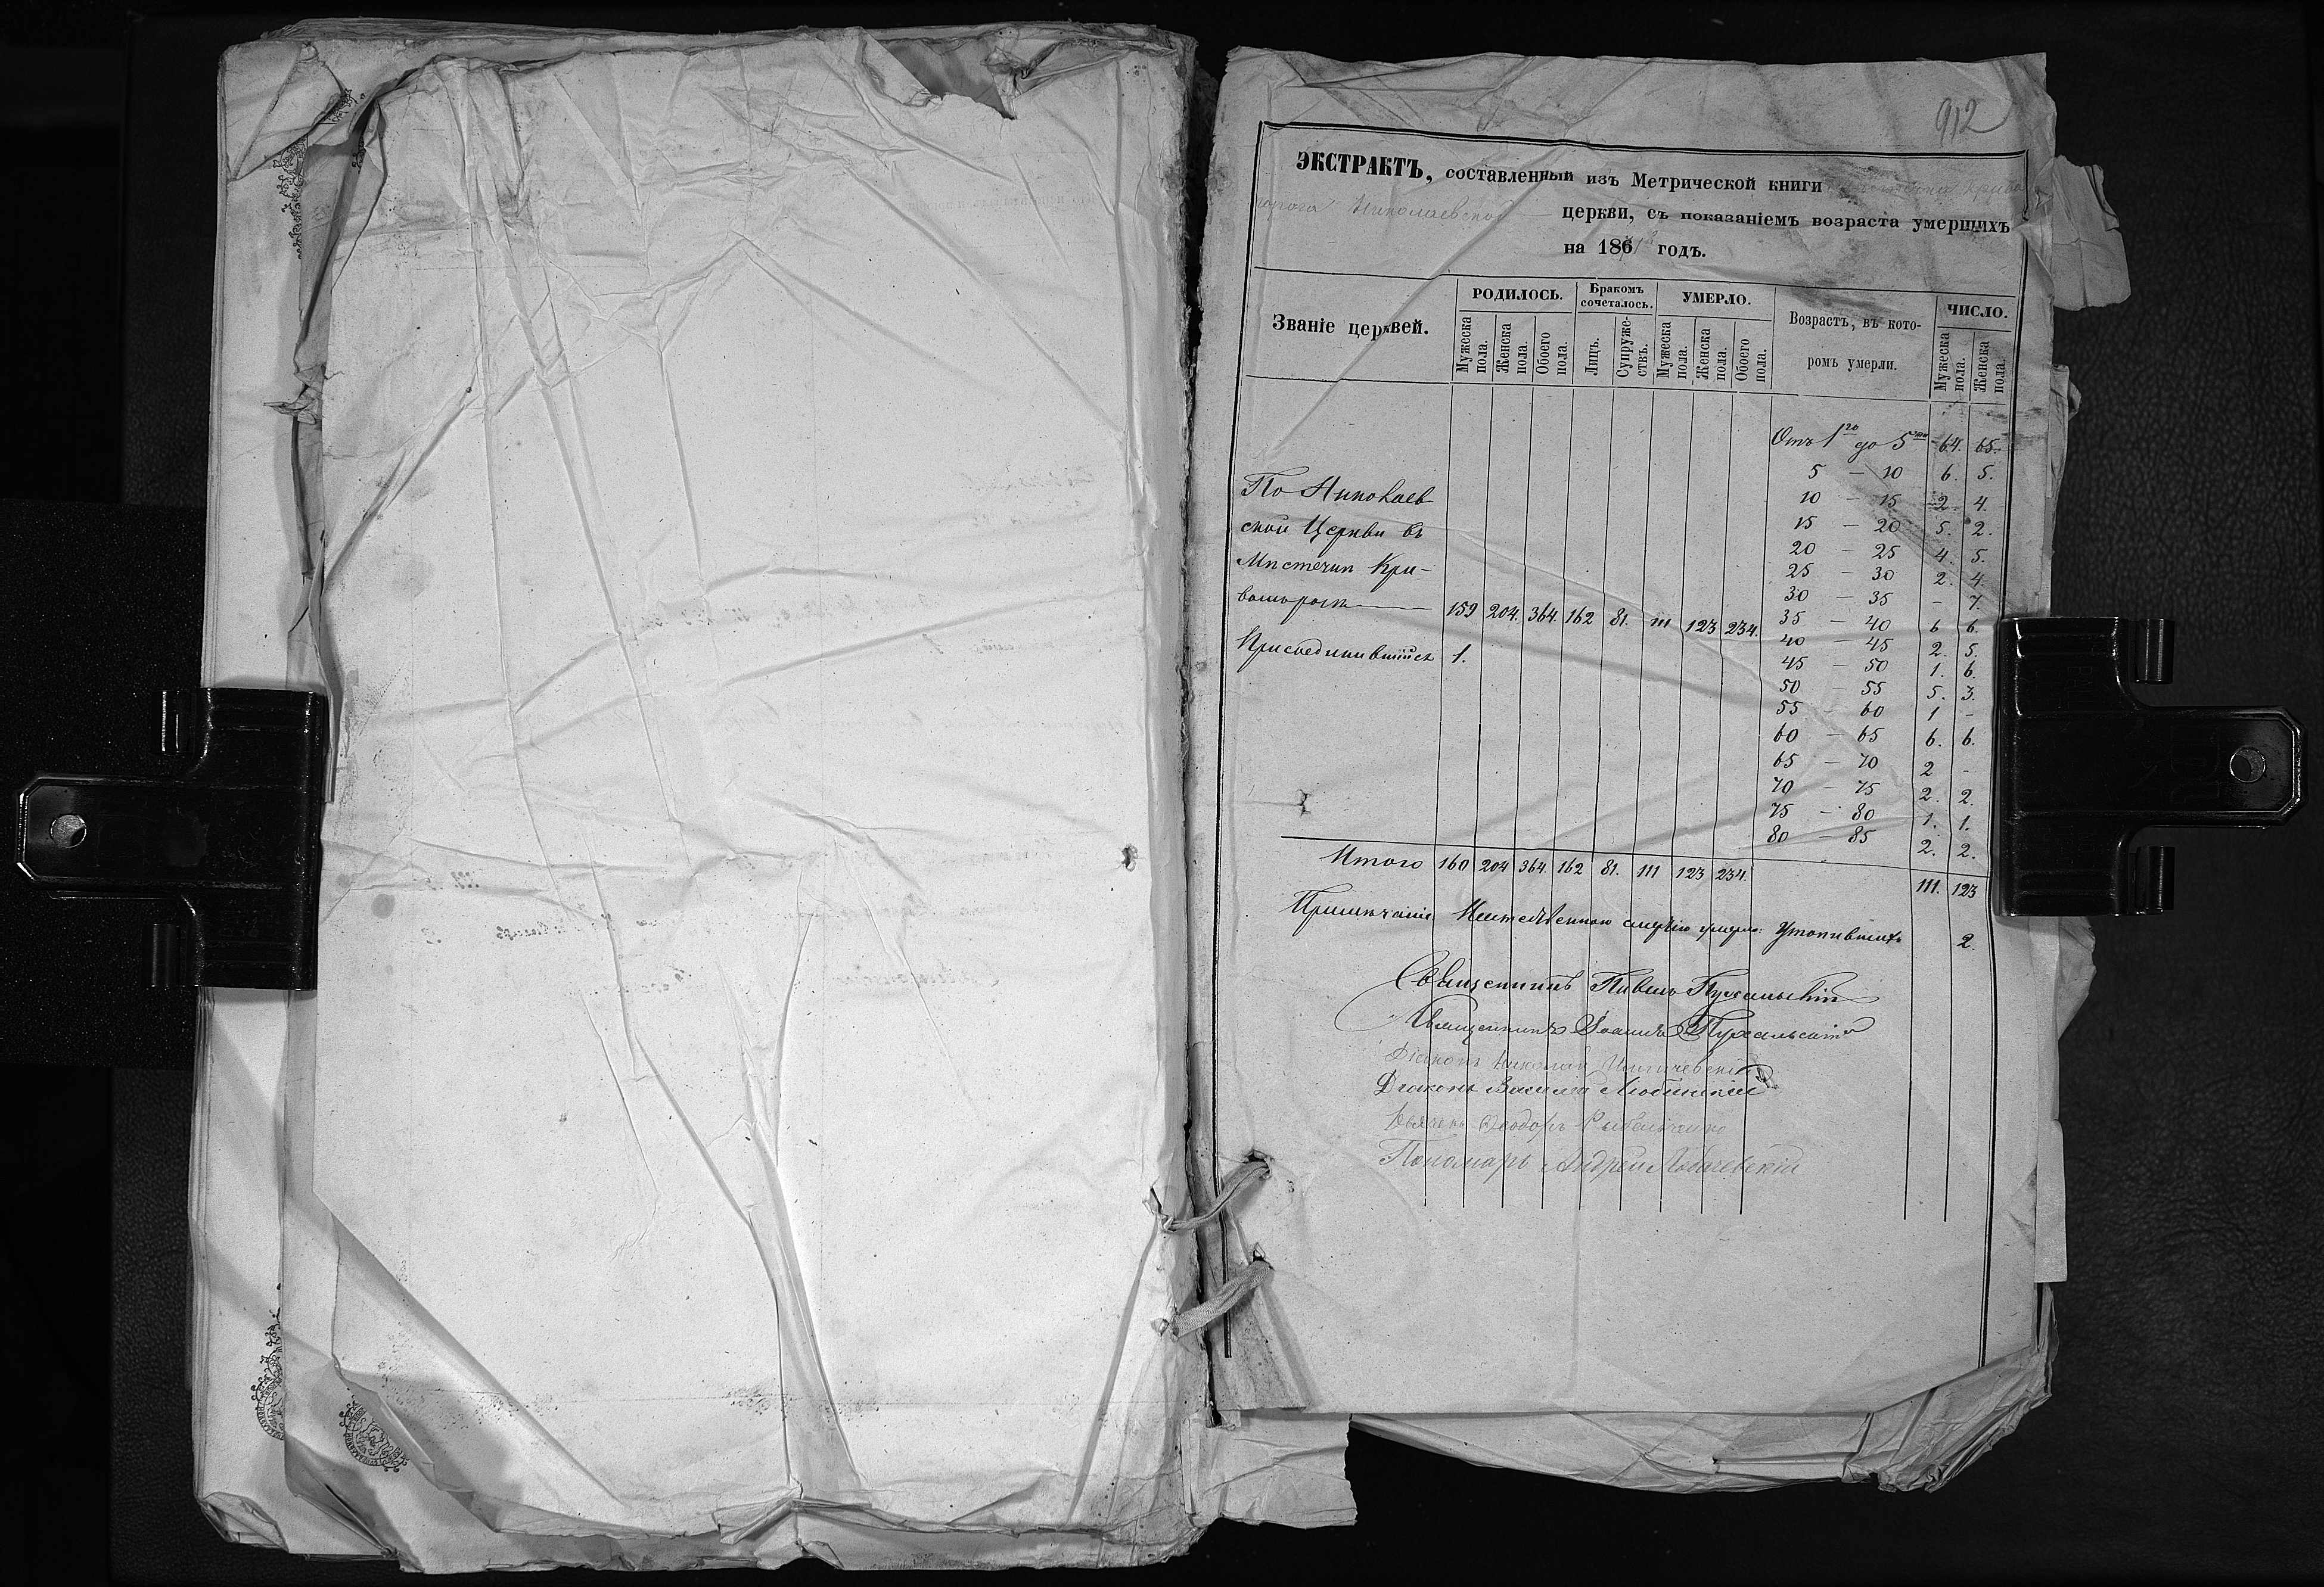 912
ЭКСТРАКТЪ, составленный изъ Метрической книги
рога Николаевской церкви, съ показаніемъ возраста умершихъ
на 186 годъ.
Званіе церквей.
РОДИЛОСЬ.
Бракомъ сочеталось.
УМЕРЛО.
Возрастъ, въ кото-
ромъ умерли.
ЧИСЛО.
Мужеска пола.
Женска пола.
Обоего пола.
Лицъ.
Супружествъ.
Мужеска пола.
Женска пола.
Обоего пола.
Мужеска пола.
Женска пола.
Отъ 1го до 5ти 64. 65.
5 — 10 6. 5.
10 — 15 2 4.
15 — 20 5. 2.
20 — 25 4. 5.
25 — 30 2. 4.
30 — 35 - 7.
35 — 40 6 6.
40 — 45 2. 5.
45 — 50 1. 6.
50 — 55 5. 3.
55 — 60 1 -
60 — 65 6. 6.
65 — 70 2 -
70 — 75 2. 2.
75 — 80 1. 1.
80 — 85 2. 2.
По Николаев
ской Церкви въ
Мѣстечкѣ Кри-
вомъ рогѣ — 159 204. 364. 162 81. 111 123 234.
Присоединившійся 1.
Итого 160 204 364. 162 81. 111 123 234. 111. 123
Примѣчаніе Неестественною смертію умерло: Утопившихъ 2.
Священникъ Павелъ Пухальскій
Священникъ Іоаннъ Пухальскій
Діаконъ Николай
Діаконъ Василій
Дьячекъ Ѳеодоръ
Пономарь Андрей Лобачевскій